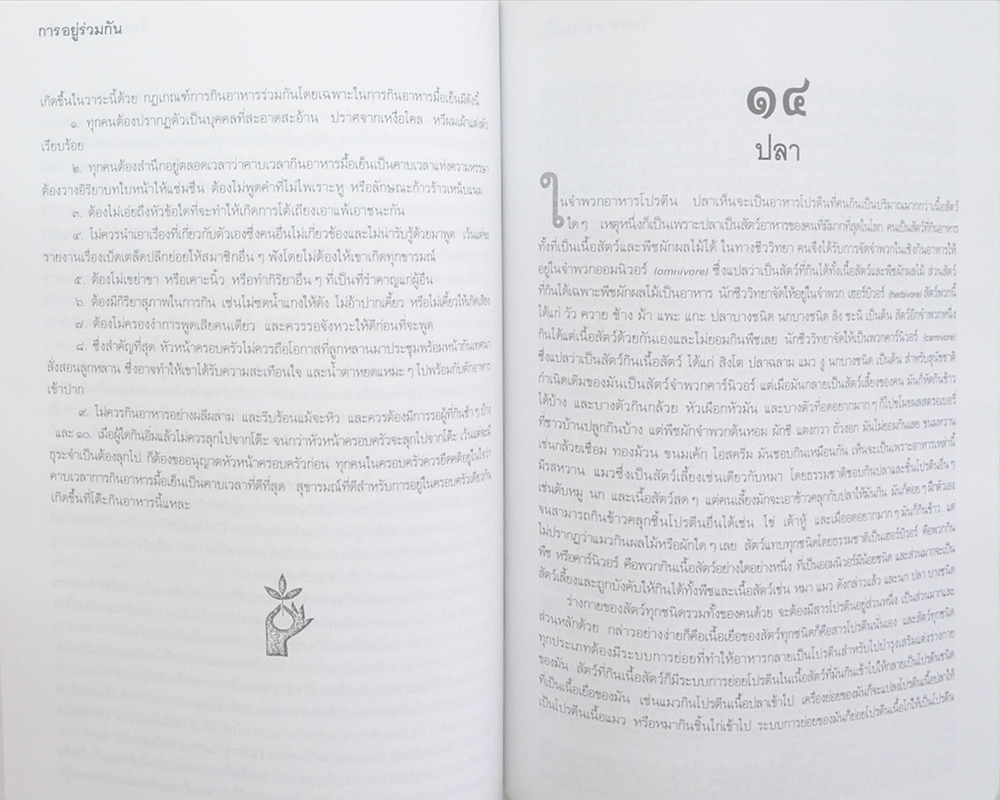 การอยู่ร่วมกัน
เกิดขึ้นในวาระนี้ด้วย กฎเกณฑ์การกินอาหารร่วมกันโดยเฉพาะในการกินอาหารมื้อเย็นมีดังนี้
๑. ทุกคนต้องปรากฏตัวเป็นบุคคลที่สะอาดสะอ้าน ปราศจากเหงื่อไคล หวีผมเผ้าแต่งตัว
เรียบร้อย
๒. ทุกคนต้องสำนึกอยู่ตลอดเวลาว่าคาบเวลากินอาหารมื้อเย็นเป็นคาบเวลาแห่งความหรรษา
ต้องวางอิริยาบทใบหน้าให้แช่มชื่น ต้องไม่พูดคำที่ไม่ไพเราะหู หรือลักษณะก้าวร้าวเหน็บแนม
๓. ต้องไม่เอ่ยถึงหัวข้อใดที่จะทำให้เกิดการโต้เถียงเอาแพ้เอาชนะกัน
๔. ไม่ควรนำเอาเรื่องที่เกี่ยวกับตัวเองซึ่งคนอื่นไม่เกี่ยวข้องและไม่น่ารับรู้ด้วยมาพูด เว้นแต่จะ
รายงานเรื่องเบ็ดเตล็ดปลีกย่อยให้สมาชิกอื่น ๆ ฟังโดยไม่ต้องให้เขาเกิดทุกขารมณ์
๕. ต้องไม่เขย่าขา หรือเคาะนิ้ว หรือทำกิริยาอื่น ๆ ที่เป็นที่รำคาญแก่ผู้อื่น
๖. ต้องมีกิริยาสุภาพในการกิน เช่นไม่ซดน้ำแกงให้ดัง ไม่อ้าปากเคี้ยว หรือไม่เคี้ยวให้เกิดเสียง
๗. ต้องไม่ครองงำการพูดเสียคนเดียว และควรรอจังหวะให้ดีก่อนที่จะพูด
๘. ซึ่งสำคัญที่สุด หัวหน้าครอบครัวไม่ควรถือโอกาสที่ลูกหลานมาประชุมพร้อมหน้ากันเทศนา
สั่งสอนลูกหลาน ซึ่งอาจทำให้เขาได้รับความสะเทือนใจ และน้ำตาหยดแหมะ ๆ ไปพร้อมกับตักอาหาร
เข้าปาก
๙. ไม่ควรกินอาหารอย่างผลีผลาม และรีบร้อนแม้จะหิว และควรต้องมีการรอผู้ที่กินช้า ๆ บ้าง
และ ๑๐. เมื่อผู้ใดกินอิ่มแล้วไม่ควรลุกไปจากโต๊ะ จนกว่าหัวหน้าครอบครัวจะลุกไปจากโต๊ะ เว้นแต่จะมี
ธุระจำเป็นต้องลุกไป ก็ต้องขออนุญาตหัวหน้าครอบครัวก่อน ทุกคนในครอบครัวควรยึดคติอยู่ในใจว่า
คาบเวลาการกินอาหารมื้อเย็นเป็นคาบเวลาที่ดีที่สุด สุขารมณ์ที่ดีสำหรับการอยู่ในครอบครัวเดียวกัน
เกิดขึ้นที่โต๊ะกินอาหารนี้แหละ
๑๔
ปลา
ในจำพวกอาหารโปรตีน ปลาเห็นจะเป็นอาหารโปรตีนที่คนกินเป็นปริมาณมากกว่าเนื้อสัตว์
ใด ๆ เหตุหนึ่งก็เป็นเพราะปลาเป็นสัตว์อาหารของคนที่มีมากที่สุดในโลก คนเป็นสัตว์ที่กินอาหาร
ทั้งที่เป็นเนื้อสัตว์และพืชผักผลไม้ได้ ในทางชีววิทยา คนจึงได้รับการจัดจำพวกในเชิงกินอาหารให้
อยู่ในจำพวกออมนิวอร์ (omnivore) ซึ่งแปลว่าเป็นสัตว์ที่กินได้ทั้งเนื้อสัตว์และพืชผักผลไม้ ส่วนสัตว์
ที่กินได้เฉพาะพืชผักผลไม้เป็นอาหาร นักชีววิทยาจัดให้อยู่ในจำพวก เฮอร์บิวอร์ (herbivore) สัตว์พวกนี้
ได้แก่ วัว ควาย ช้าง ม้า แพะ แกะ ปลาบางชนิด นกบางชนิด ลิง ชะนี เป็นต้น สัตว์อีกจำพวกหนึ่ง
กินได้แต่เนื้อสัตว์ด้วยกันเองและไม่ยอมกินพืชเลย นักชีววิทยาจัดให้เป็นพวกคาร์นิวอร์ (carnivore)
ซึ่งแปลว่าเป็นสัตว์กินเนื้อสัตว์ ได้แก่ สิงโต ปลาฉลาม แมว งู นกบางชนิด เป็นต้น สำหรับสุนัขชาติ
กำเนิดเดิมของมันเป็นสัตว์จำพวกคาร์นิวอร์ แต่เมื่อมันกลายเป็นสัตว์เลี้ยงของคน มันก็หัดกินข้าว
ได้บ้าง และบางตัวกินกล้วย หัวเผือกหัวมัน และบางตัวที่อดอยากมาก ๆ ก็ไปขโมยผลสตรอเบอรี่
ที่ชาวบ้านปลูกกินบ้าง แต่พืชผักจำพวกต้นหอม ผักชี แตงกวา ถั่วงอก มันไม่ยอมกินเลย ขนมหวาน
เช่นกล้วยเชื่อม ทองม้วน ขนมเค้ก ไอสครีม มันชอบกินเหมือนกัน เห็นจะเป็นเพราะอาหารเหล่านี้
มีรสหวาน แมวซึ่งเป็นสัตว์เลี้ยงเช่นเดียวกับหมา โดยธรรมชาติชอบกินปลาและชิ้นโปรตีนอื่น ๆ
เช่นตับหมู นก และเนื้อสัตว์สด ๆ แต่คนเลี้ยงมักจะเอาข้าวคลุกกับปลาให้มันกิน มันก็ค่อย ๆ ฝึกตัวเอง
จนสามารถกินข้าวคลุกชิ้นโปรตีนอื่นได้เช่น ไข่ เต้าหู้ และเมื่ออดอยากมาก ๆ มันก็กินข้าว แต่
ไม่ปรากฏว่าแมวกินผลไม้หรือผักใด ๆ เลย สัตว์แทบทุกชนิดโดยธรรมชาติเป็นเฮอร์บิวอร์ คือพวกกิน
พืช หรือคาร์นิวอร์ คือพวกกินเนื้อสัตว์อย่างใดอย่างหนึ่ง ที่เป็นออมนิวอร์มีน้อยชนิด และส่วนมากจะเป็น
สัตว์เลี้ยงและถูกบังคับให้กินได้ทั้งพืชและเนื้อสัตว์เช่น หมา แมว ดังกล่าวแล้ว และนก ปลา บางชนิด
ร่างกายของสัตว์ทุกชนิดรวมทั้งของคนด้วย จะต้องมีสารโปรตีนอยู่ส่วนหนึ่ง เป็นส่วนมากและ
ส่วนหลักด้วย กล่าวอย่างง่ายก็คือเนื้อเยื่อของสัตว์ทุกชนิดก็คือสารโปรตีนนั่นเอง และสัตว์ทุกชนิด
ทุกประเภทต้องมีระบบการย่อยที่ทำให้อาหารกลายเป็นโปรตีนสำหรับไปบำรุงเสริมแต่งร่างกาย
ของมัน สัตว์ที่กินเนื้อสัตว์ก็มีระบบการย่อยโปรตีนในเนื้อสัตว์ที่มันกินเข้าไปให้กลายเป็นโปรตีนชนิด
ที่เป็นเนื้อเยื่อของมัน เช่นแมวกินโปรตีนเนื้อปลาเข้าไป เครื่องย่อยของมันก็จะแปลงโปรตีนเนื้อปลาให้
เป็นโปรตีนเนื้อแมว หรือหมากินชิ้นไก่เข้าไป ระบบการย่อยของมันก็ย่อยโปรตีนเนื้อไก่ให้เป็นโปรตีน